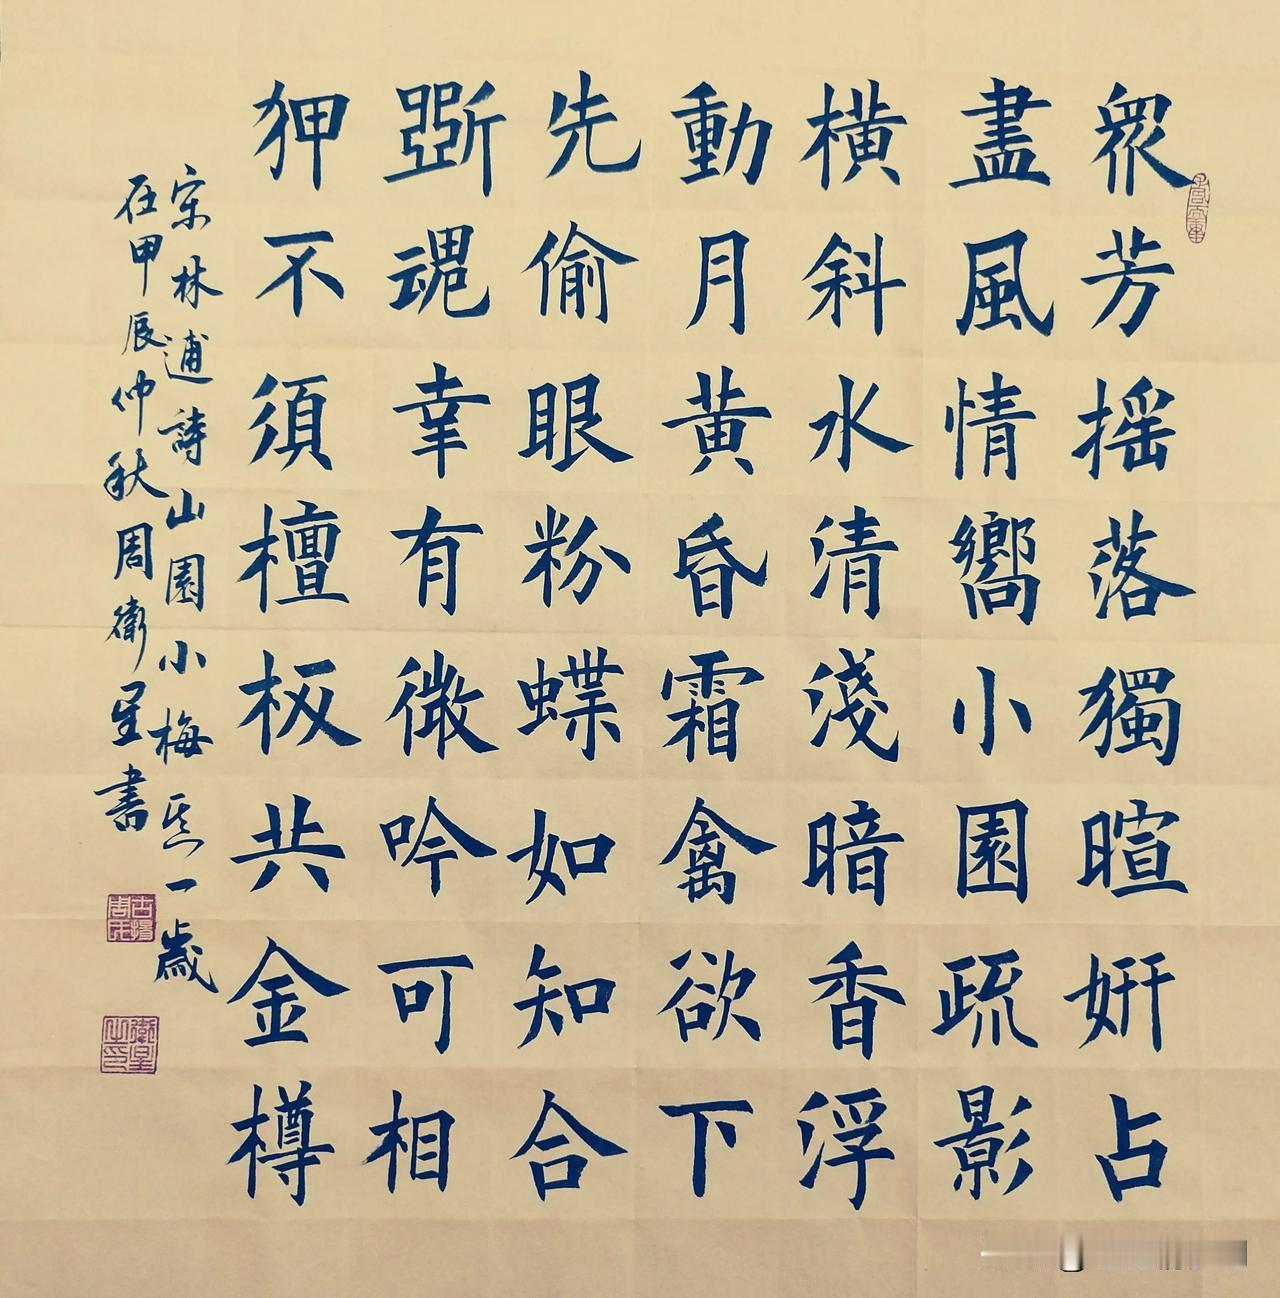 眾芳摇落獨暄妍占
盡風情嚮小園疏影
橫斜水清淺暗香浮
動月黃昏霜禽欲下
先偷眼粉蝶如知合
斷魂幸有微吟可相
狎不須檀板共金樽
宋林逋詩山園小梅其一歲
在甲辰仲秋周衛星書
衛星之印